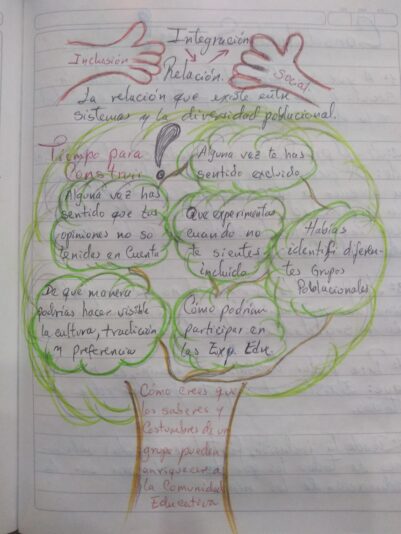 Integración
Inclusión
Relación.
Social.
La relación que existe entre
sistemas y la diversidad poblacional.
Tiempo para
Construir
!
Alguna vez te has
sentido excluido
Alguna vez has
sentido que tus
opiniones no so
tenidas en Cuenta
Que experimentas
cuando no
te sientes
incluido
Habías
identifi diferen-
tes Grupos
Poblacionales
De que manera
podrías hacer visible
la cultura, tradición
y preferencia
Cómo podrían
participar en
las Exp. Edu.
Cómo crees que
los saberes y
Costumbres de un
grupo pueden
enriquecer a
la Comunidad
Educativa